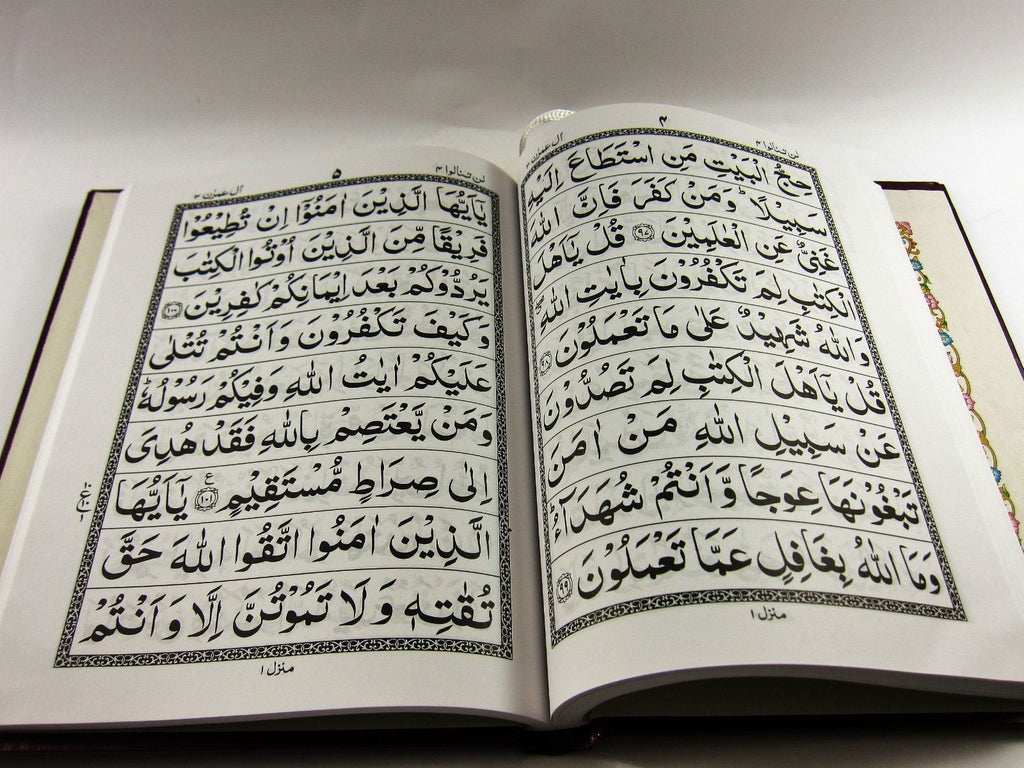 لن تنالوا ٤
٤
آل عمرٰن ٣
حِجُّ الْبَيْتِ مَنِ اسْتَطَاعَ اِلَيْهِ
سَبِيْلًا ؕ وَمَنْ كَفَرَ فَاِنَّ اللّٰهَ
غَنِيٌّ عَنِ الْعٰلَمِيْنَ ﴿۹۷﴾ قُلْ يٰۤاَهْلَ
الْكِتٰبِ لِمَ تَكْفُرُوْنَ بِاٰيٰتِ اللّٰهِ ۖۗ
وَاللّٰهُ شَهِيْدٌ عَلٰى مَا تَعْمَلُوْنَ ﴿۹۸﴾
قُلْ يٰۤاَهْلَ الْكِتٰبِ لِمَ تَصُدُّوْنَ
عَنْ سَبِيْلِ اللّٰهِ مَنْ اٰمَنَ
تَبْغُوْنَهَا عِوَجًا وَّاَنْتُمْ شُهَدَآءُ ؕ
وَمَا اللّٰهُ بِغَافِلٍ عَمَّا تَعْمَلُوْنَ ﴿۹۹﴾
منزل ١
لن تنالوا ٤
۵
آل عمرٰن ٣
يٰۤاَيُّهَا الَّذِيْنَ اٰمَنُوْۤا اِنْ تُطِيْعُوْا
فَرِيْقًا مِّنَ الَّذِيْنَ اُوْتُوا الْكِتٰبَ
يَرُدُّوْكُمْ بَعْدَ اِيْمَانِكُمْ كٰفِرِيْنَ ﴿۱۰۰﴾
وَكَيْفَ تَكْفُرُوْنَ وَاَنْتُمْ تُتْلٰى
عَلَيْكُمْ اٰيٰتُ اللّٰهِ وَفِيْكُمْ رَسُوْلُهٗ ؕ
وَمَنْ يَّعْتَصِمْ بِاللّٰهِ فَقَدْ هُدِيَ
اِلٰى صِرَاطٍ مُّسْتَقِيْمٍ ﴿۱۰۱﴾ ع يٰۤاَيُّهَا
الَّذِيْنَ اٰمَنُوا اتَّقُوا اللّٰهَ حَقَّ
تُقٰتِهٖ وَلَا تَمُوْتُنَّ اِلَّا وَاَنْتُمْ
منزل ١